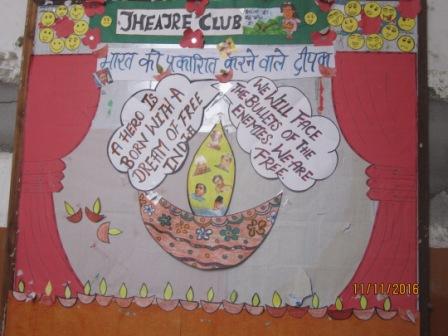 THEATRE CLUB
भारत को प्रकाशित करने वाले दीपक
A HERO IS
BORN WITH A
DREAM OF FREE
INDIA
WE WILL FACE
THE BULLETS OF THE
ENEMIES. WE ARE
FREE
11/11/2016